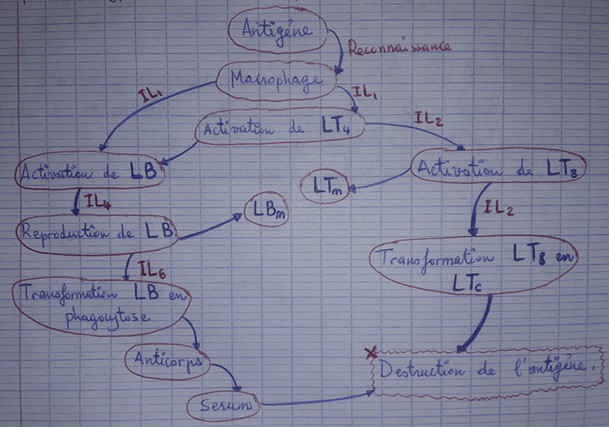 Antigéne
Reconnaissance
Macrophage
IL1
IL1
Activation de LT4
IL2
Activation de LB
Activation de LT8
LTm
IL4
LBm
IL2
Reproduction de LB
IL6
Transformation LT8 en
LTc
Transformation LB en
phagocytose
Anticorps
Destruction de l'antigéne.
Serum